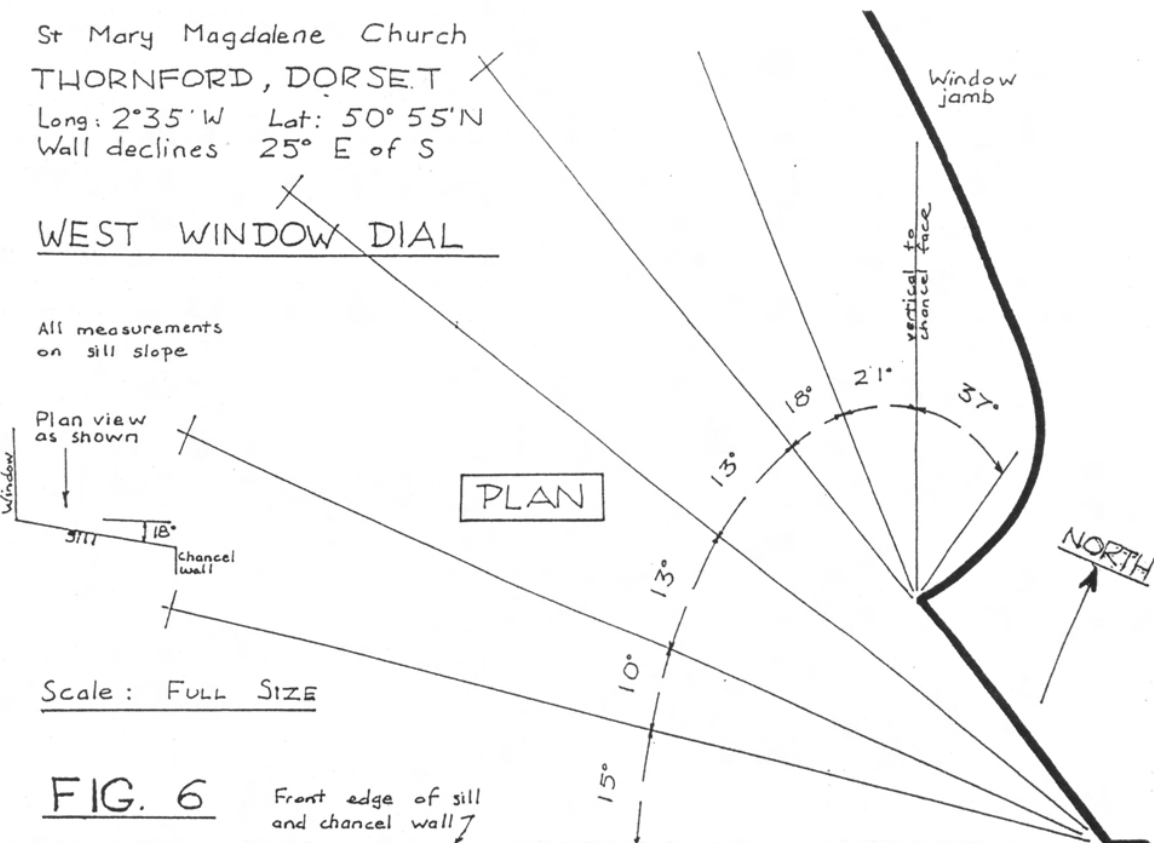 St Mary Magdalene Church
THORNFORD, DORSET
Long: 2°35'W Lat: 50° 55'N
Wall declines 25° E of S
WEST WINDOW DIAL
All measurements
on sill slope
Plan view
as shown
Window
18°
Chancel
wall
Scale: FULL SIZE
FIG. 6
Front edge of sill
and chancel wall
PLAN
15°
10°
13°
13°
18°
21°
37°
vertical to
chancel face
Window
jamb
NORTH